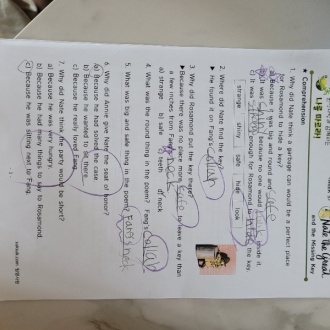 Nate the Great
and the Missing Key
★ Comprehension
1. Why did Nate think a garbage can would be a perfect place
for Rosamond to hide a key?
a) Because it was big and round and safe
b) It was shiny because no one would look inside it
c) It was strange enough for Rosamond to hide the key.
strange shiny safe huge look
2. Where did Nate find the key?
▶ He found it on Fang's collar
3. Why did Rosamond put the key there?
▶ Because there was no place more safe to leave a key than
a few inches from Fang's
a) strange b) safe c) teeth d) neck
4. What was the round thing in the poem? Fang's collar
5. What was big and safe thing in the poem? Fang's neck
6. Why did Annie give Nate the seat of honor?
a) Because he had solved the case.
b) Because he wanted to sit there.
c) Because he really loved Fang.
7. Why did Nate think the party would be short?
a) Because he was very hungry.
b) Because he had many things to say to Rosamond.
c) Because he was sitting next to Fang.